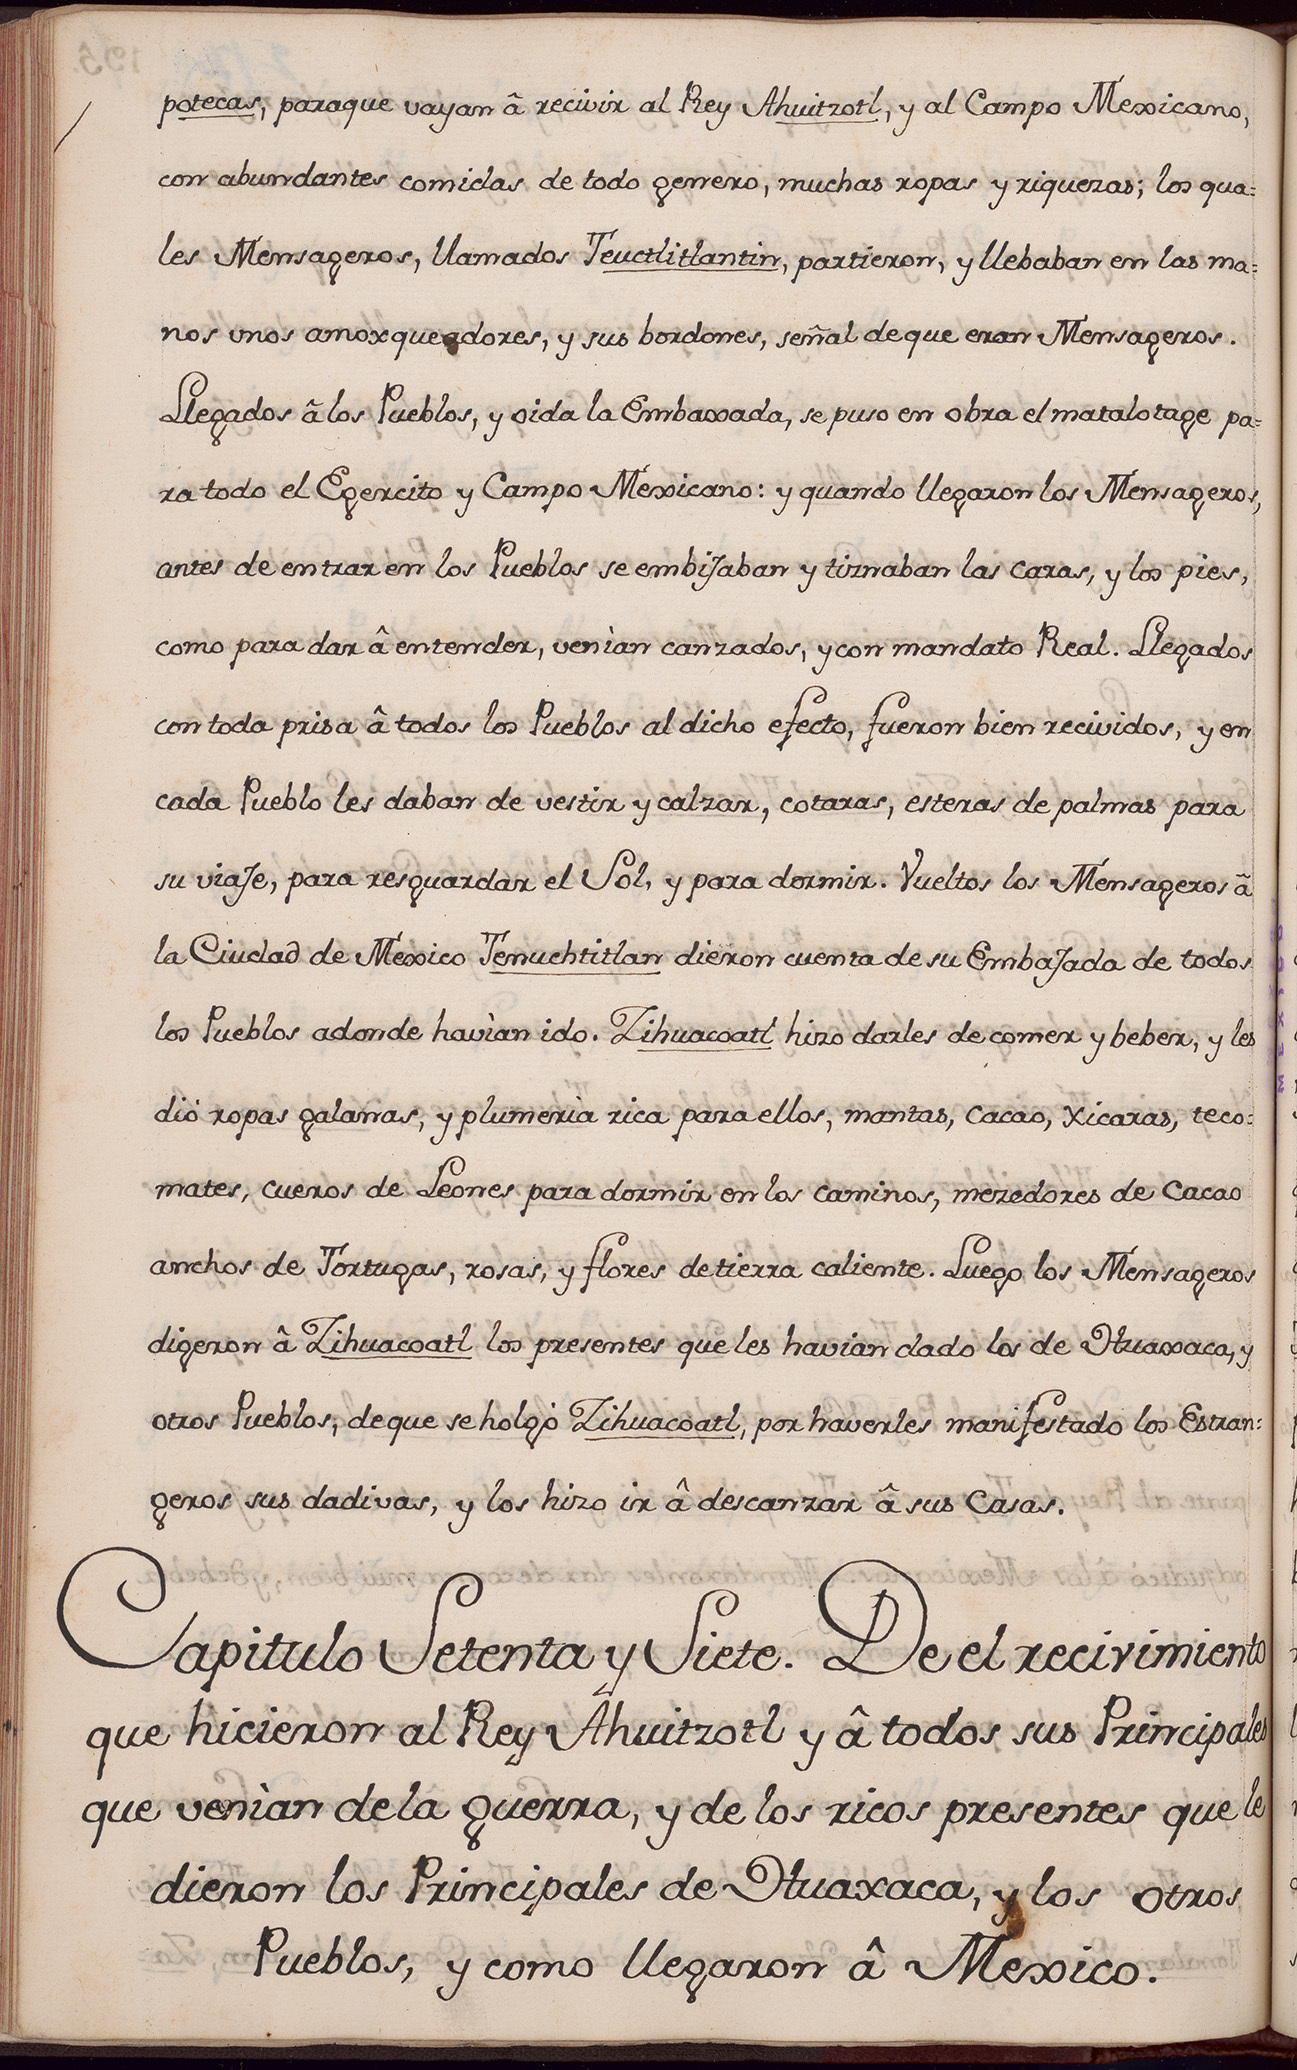 potecas, paraque vayan â recivir al Rey Ahuitzotl, y al Campo Mexicano,
con abundantes comidas de todo genero, muchas ropas y riquezas; los qua=
les Mensageros, llamados Teuctlitlantin, partieron, y llebaban en las ma=
nos unos amoxqueadores, y sus bordones, señal deque eran Mensageros.
Llegados â los Pueblos, y oida la Embaxada, se puso en obra el matalotage pa=
ra todo el Egercito y Campo Mexicano: y quando llegaron los Mensageros,
antes de entrar en los Pueblos se embiJaban y tiznaban las caras, y los pies,
como para dar â entender, venìan canzados, y con mandato Real. Llegados
con toda prisa â todos los Pueblos al dicho efecto, fueron bien recividos, y en
cada Pueblo les daban de vestir y calzar, cotaras, esteras de palmas para
su viaJe, para resguardar el Sol, y para dormir. Vueltos los Mensageros â
la Ciudad de Mexico Tenuchtitlan dieron cuenta de su EmbaJada de todos
los Pueblos adonde havìan ido. Zihuacoatl hizo darles de comer y beber, y les
diò ropas galanas, y plumerìa rica para ellos, mantas, cacao, xicaras, teco=
mates, cueros de Leones para dormir en los caminos, mezedores de Cacao
anchos de Tortugas, rosas, y flores de tierra caliente. Luego los Mensageros
digeron â Zihuacoatl los presentes que les havìan dado los de Huaxaca, y
otros Pueblos, de que se holgò Zihuacoatl, por haverles manifestado los Estran=
geros sus dadivas, y los hizo ir â descanzar â sus Casas.
Capitulo Setenta y Siete. De el recivimiento
que hicieron al Rey Ahuitzotl y â todos sus Principales
que venìan de la guerra, y de los ricos presentes que le
dieron los Principales de Huaxaca, y los otros
Pueblos, y como llegaron â Mexico.